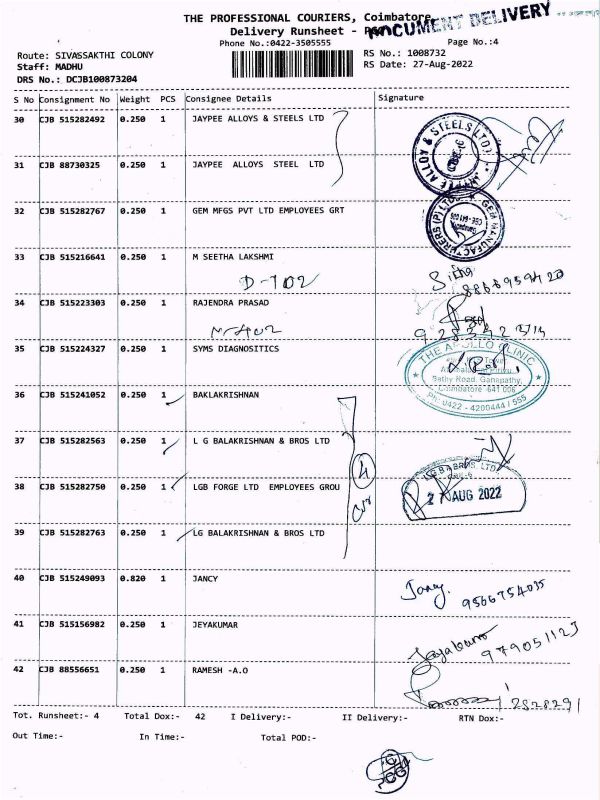 THE PROFESSIONAL COURIERS, Coimbatore
DOCUMENT DELIVERY
Delivery Runsheet -
Phone No.:0422-3505555
Page No.:4
Route: SIVASSAKTHI COLONY
RS No.: 1008732
Staff: MADHU
RS Date: 27-Aug-2022
DRS No.: DCJB100873204
S No Consignment No Weight PCS Consignee Details Signature
30 CJB 515282492 0.250 1 JAYPEE ALLOYS & STEELS LTD
31 CJB 88730325 0.250 1 JAYPEE ALLOYS STEEL LTD
32 CJB 515282767 0.250 1 GEM MFGS PVT LTD EMPLOYEES GRT
33 CJB 515216641 0.250 1 M SEETHA LAKSHMI
D-702
34 CJB 515223303 0.250 1 RAJENDRA PRASAD
35 CJB 515224327 0.250 1 SYMS DIAGNOSITICS
THE APOLLO CLINIC
Sathy Road, Ganapathy,
Coimbatore - 641 006
Ph: 0422 - 4200444 / 555
36 CJB 515241052 0.250 1 BAKLAKRISHNAN
37 CJB 515282563 0.250 1 L G BALAKRISHNAN & BROS LTD
38 CJB 515282750 0.250 1 LGB FORGE LTD EMPLOYEES GROU
4
L.G.B & BROS. LTD
2 7 AUG 2022
39 CJB 515282763 0.250 1 LG BALAKRISHNAN & BROS LTD
40 CJB 515249093 0.820 1 JANCY
Jancy.
9566754035
41 CJB 515156982 0.250 1 JEYAKUMAR
42 CJB 88556651 0.250 1 RAMESH -A.O
Tot. Runsheet:- 4 Total Dox:- 42 I Delivery:- II Delivery:- RTN Dox:-
Out Time:- In Time:- Total POD:-